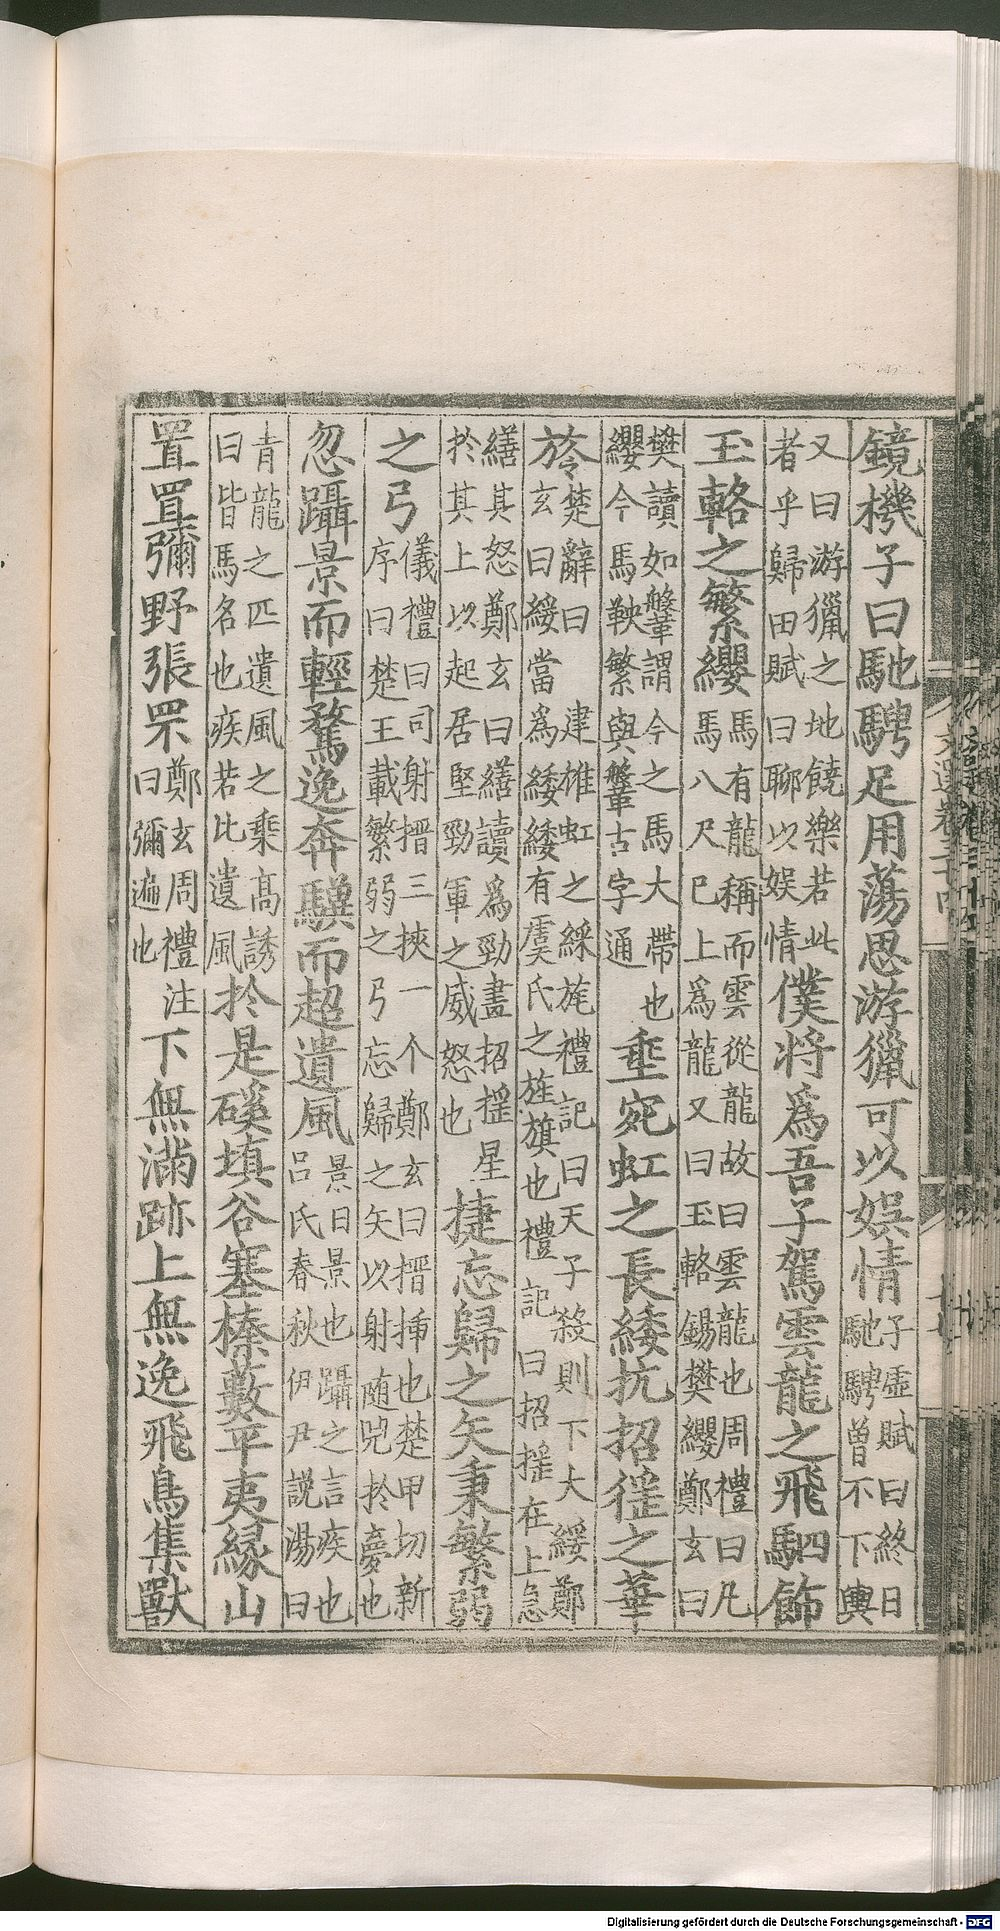 鏡機子曰馳騁足用蕩思游獵可以娛情子虛賦曰終日馳騁曾不下輿
又曰游獵之地饒樂若此者乎歸田賦曰聊以娛情僕將爲吾子駕雲龍之飛駟飾
玉輅之繁纓馬有龍稱而雲從龍故曰雲龍也周禮曰凡馬八尺已上爲龍又曰玉輅錫樊纓鄭玄曰
樊讀如鞶鞶謂今之馬大帶也纓今馬鞅繁與鞶古字通垂宛虹之長緌抗招搖之華
旍楚辭曰建雄虹之綵旄禮記曰天子殺則下大綏鄭玄曰綏當爲緌緌有虞氏之旌旗也禮記曰招搖在上急
繕其怒鄭玄曰繕讀爲勁畫招搖星於其上以起居堅勁軍之威怒也捷忘歸之矢秉繁弱
之弓儀禮曰司射搢三挾一个鄭玄曰搢揷也楚甲切新序曰楚王載繁弱之弓忘歸之矢以射随兕於夢也
忽躡景而輕騖逸奔驥而超遺風景日景也躡之言疾也呂氏春秋伊尹説湯曰
青龍之匹遺風之乘高誘曰皆馬名也疾若比遺風於是磎填谷塞榛藪平夷縁山
置罝彌野張罘鄭玄周禮注曰彌遍也下無滿跡上無逸飛鳥集獸
Digitalisierung gefördert durch die Deutsche Forschungsgemeinschaft - DFG